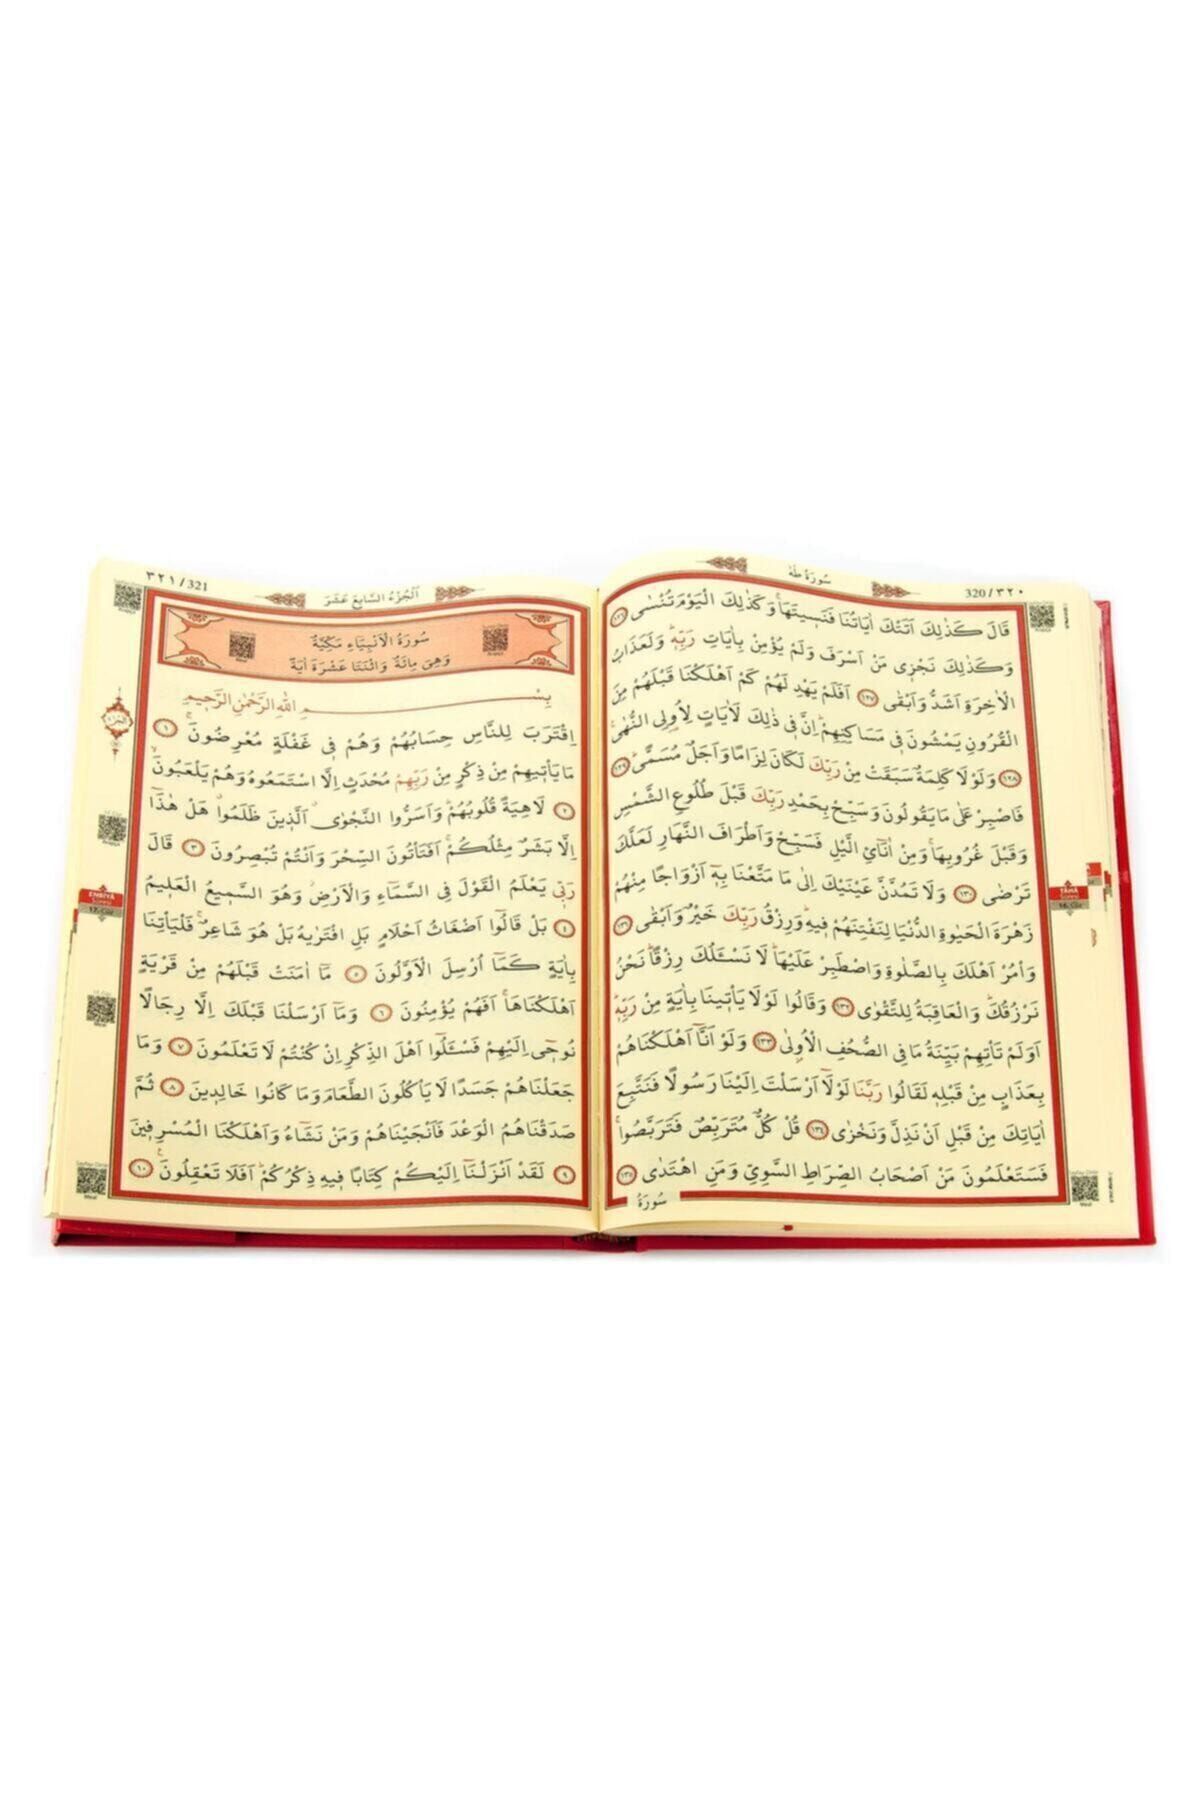 320/٣٢٠
سُورَةُ طٰهٰ
قَالَ كَذٰلِكَ اَتَتْكَ اٰيَاتُنَا فَنَسٖيتَهَاۚ وَكَذٰلِكَ الْيَوْمَ تُنْسٰى ﴿١٢٦﴾
وَكَذٰلِكَ نَجْزٖى مَنْ اَسْرَفَ وَلَمْ يُؤْمِنْ بِاٰيَاتِ رَبِّهٖۜ وَلَعَذَابُ
الْاٰخِرَةِ اَشَدُّ وَاَبْقٰى ﴿١٢٧﴾ اَفَلَمْ يَهْدِ لَهُمْ كَمْ اَهْلَكْنَا قَبْلَهُمْ مِنَ
الْقُرُونِ يَمْشُونَ فٖى مَسَاكِنِهِمْۜ اِنَّ فٖى ذٰلِكَ لَاٰيَاتٍ لِاُولِى النُّهٰىۚ
﴿١٢٨﴾ وَلَوْلَا كَلِمَةٌ سَبَقَتْ مِنْ رَبِّكَ لَكَانَ لِزَامًا وَاَجَلٌ مُسَمًّىۜ ﴿١٢٩﴾
فَاصْبِرْ عَلٰى مَا يَقُولُونَ وَسَبِّحْ بِحَمْدِ رَبِّكَ قَبْلَ طُلُوعِ الشَّمْسِ
وَقَبْلَ غُرُوبِهَاۚ وَمِنْ اٰنَٓائِ الَّيْلِ فَسَبِّحْ وَاَطْرَافَ النَّهَارِ لَعَلَّكَ
تَرْضٰى ﴿١٣٠﴾ وَلَا تَمُدَّنَّ عَيْنَيْكَ اِلٰى مَا مَتَّعْنَا بِهٖٓ اَزْوَاجًا مِنْهُمْ
زَهْرَةَ الْحَيٰوةِ الدُّنْيَا لِنَفْتِنَهُمْ فٖيهِۜ وَرِزْقُ رَبِّكَ خَيْرٌ وَاَبْقٰى ﴿١٣١﴾
وَأْمُرْ اَهْلَكَ بِالصَّلٰوةِ وَاصْطَبِرْ عَلَيْهَاۜ لَا نَسْـَٔلُكَ رِزْقًاۜ نَحْنُ
نَرْزُقُكَۜ وَالْعَاقِبَةُ لِلتَّقْوٰى ﴿١٣٢﴾ وَقَالُوا لَوْلَا يَأْتٖينَا بِاٰيَةٍ مِنْ رَبِّهٖۜ
اَوَلَمْ تَأْتِهِمْ بَيِّنَةُ مَا فِى الصُّحُفِ الْاُولٰى ﴿١٣٣﴾ وَلَوْ اَنَّٓا اَهْلَكْنَاهُمْ
بِعَذَابٍ مِنْ قَبْلِهٖ لَقَالُوا رَبَّنَا لَوْلَٓا اَرْسَلْتَ اِلَيْنَا رَسُولًا فَنَتَّبِعَ
اٰيَاتِكَ مِنْ قَبْلِ اَنْ نَذِلَّ وَنَخْزٰى ﴿١٣٤﴾ قُلْ كُلٌّ مُتَرَبِّصٌ فَتَرَبَّصُواۚ
فَسَتَعْلَمُونَ مَنْ اَصْحَابُ الصِّرَاطِ السَّوِىِّ وَمَنِ اهْتَدٰى ﴿١٣٥﴾
سُورَةُ
TÂHÂ
16. Cüz
٣٢١/321
اَلْجُزْءُ السَّابِعَ عَشَرَ
سُورَةُ الْاَنْبِيَاءِ مَكِّيَّةٌ
وَهِىَ مِائَةٌ وَاثْنَتَا عَشْرَةَ اٰيَةً
بِسْمِ اللّٰهِ الرَّحْمٰنِ الرَّحٖيمِ
اِقْتَرَبَ لِلنَّاسِ حِسَابُهُمْ وَهُمْ فٖى غَفْلَةٍ مُعْرِضُونَۚ ﴿١﴾
مَا يَأْتٖيهِمْ مِنْ ذِكْرٍ مِنْ رَبِّهِمْ مُحْدَثٍ اِلَّا اسْتَمَعُوهُ وَهُمْ يَلْعَبُونَۙ
﴿٢﴾ لَاهِيَةً قُلُوبُهُمْۜ وَاَسَرُّوا النَّجْوٰىۗ اَلَّذٖينَ ظَلَمُواۗ هَلْ هٰذَٓا
اِلَّا بَشَرٌ مِثْلُكُمْۚ اَفَتَأْتُونَ السِّحْرَ وَاَنْتُمْ تُبْصِرُونَ ﴿٣﴾ قَالَ
رَبّٖى يَعْلَمُ الْقَوْلَ فِى السَّمَٓاءِ وَالْاَرْضِۘ وَهُوَ السَّمٖيعُ الْعَلٖيمُ
﴿٤﴾ بَلْ قَالُٓوا اَضْغَاثُ اَحْلَامٍ بَلِ افْتَرٰيهُ بَلْ هُوَ شَاعِرٌۚ فَلْيَأْتِنَا
بِاٰيَةٍ كَمَٓا اُرْسِلَ الْاَوَّلُونَ ﴿٥﴾ مَٓا اٰمَنَتْ قَبْلَهُمْ مِنْ قَرْيَةٍ
اَهْلَكْنَاهَاۚ اَفَهُمْ يُؤْمِنُونَ ﴿٦﴾ وَمَٓا اَرْسَلْنَا قَبْلَكَ اِلَّا رِجَالًا
نُوحٖٓى اِلَيْهِمْ فَسْـَٔلُٓوا اَهْلَ الذِّكْرِ اِنْ كُنْتُمْ لَا تَعْلَمُونَ ﴿٧﴾ وَمَا
جَعَلْنَاهُمْ جَسَدًا لَا يَأْكُلُونَ الطَّعَامَ وَمَا كَانُوا خَالِدٖينَ ﴿٨﴾ ثُمَّ
صَدَقْنَاهُمُ الْوَعْدَ فَاَنْجَيْنَاهُمْ وَمَنْ نَشَٓاءُ وَاَهْلَكْنَا الْمُسْرِفٖينَ
﴿٩﴾ لَقَدْ اَنْزَلْنَٓا اِلَيْكُمْ كِتَابًا فٖيهِ ذِكْرُكُمْۜ اَفَلَا تَعْقِلُونَ۟ ﴿١٠﴾
ENBİYÂ
17. Cüz